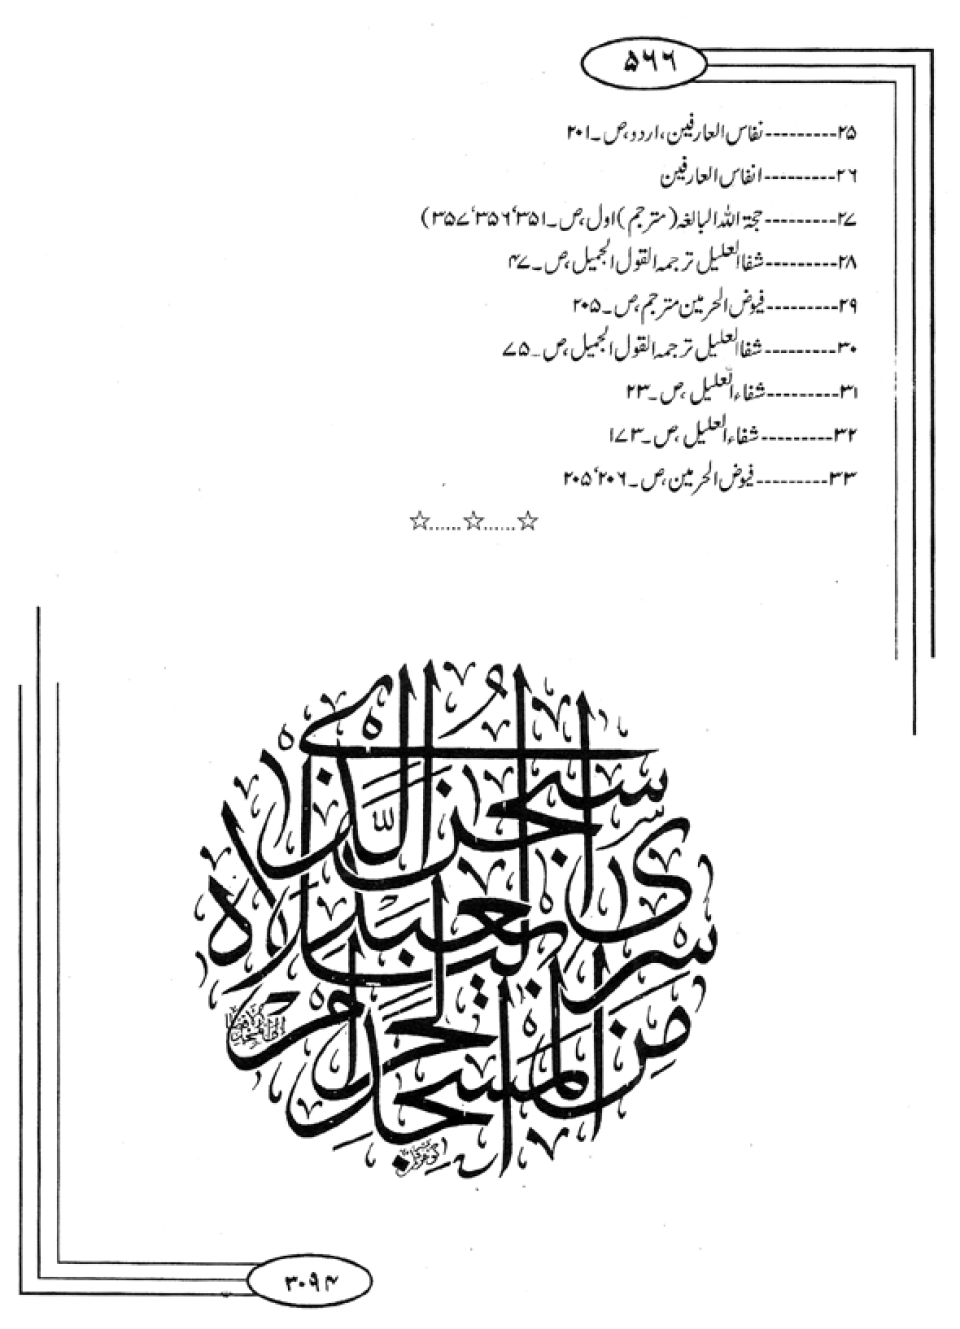 ۵۶۶
۲۵---------نفاس العارفین، اردو، ص۔۲۰۱
۲۶---------انفاس العارفین
۲۷---------حجۃ اللہ البالغہ (مترجم) اول، ص۔۳۵۱‘۳۵۶‘۳۵۷)
۲۸---------شفاالعلیل ترجمہ القول الجمیل، ص۔۴۷
۲۹---------فیوض الحرمین مترجم، ص۔۲۰۵
۳۰---------شفاالعلیل ترجمہ القول الجمیل، ص۔۷۵
۳۱---------شفاء العلیل، ص۔۲۳
۳۲---------شفاء العلیل، ص۔۱۷۳
۳۳---------فیوض الحرمین، ص۔۲۰۶‘۲۰۵
☆......☆......☆
سبحن الذی
اسری بعبدہ لیلا
من المسجد الحرام
۳۰۹۴